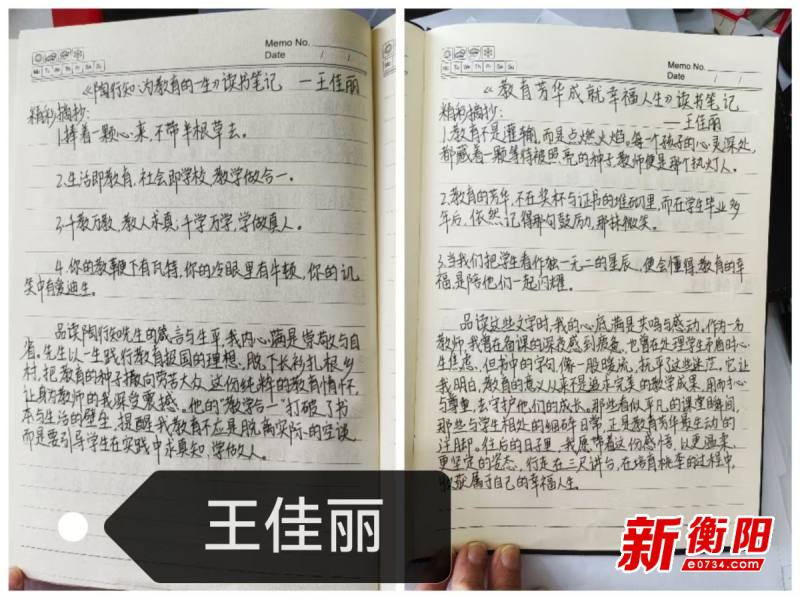 Memo No.
Date / /
Mo Tu We Th Fr Sa Su
《陶行知:为教育的一生》读书笔记 —王佳丽
精彩摘抄:
1.捧着一颗心来,不带半根草去。
2.生活即教育,社会即学校,教学做合一。
3.千教万教,教人求真,千学万学,学做真人。
4.你的教鞭下有瓦特,你的冷眼里有牛顿,你的讥
笑中有爱迪生。
品读陶行知先生的箴言与生平,我内心满是崇敬与自
省。先生以一生践行教育报国的理想,脱下长衫扎根乡
村,把教育的种子撒向劳苦大众,这份纯粹的教育情怀,
让身为教师的我深受震撼。他的“教学合一”打破了书
本与生活的壁垒,提醒我教育不应是脱离实际的空谈,
而是要引导学生在实践中求真知,学做人。
Memo No.
Date / /
Mo Tu We Th Fr Sa Su
《教育芳华成就幸福人生》读书笔记
—王佳丽
精彩摘抄:
1.教育不是灌输,而是点燃火焰。每一个孩子的心灵深处,
都藏着一颗等待被照亮的种子,教师便是那个执灯人。
2.教育的芳华,不在奖杯与证书的堆砌里,而在学生毕业多
年后,依然记得那句鼓励,那抹微笑。
3.当我们把学生看作独一无二的星辰,便会懂得,教育的幸
福,是陪他们一起闪耀。
品读这些文字时,我的心底满是共鸣与感动。作为一名
教师,我曾在备课的深夜感到疲惫,也曾在处理学生矛盾时心
生焦虑,但书中的字句,像一股暖流,抚平了这些迷茫。它让
我明白,教育的意义从来不是追求完美的教学成果,用耐心
与尊重,去守护他们的成长。那些看似平凡的课堂瞬间,
那些与学生相处的细碎日常,正是教育芳华最生动的
注脚。往后的日子里,我愿带着这份感悟,以更温柔、
更坚定的姿态,行走在三尺讲台,在培育桃李的过程中,
收获属于自己的幸福人生。
王佳丽
新衡阳
e0734.com